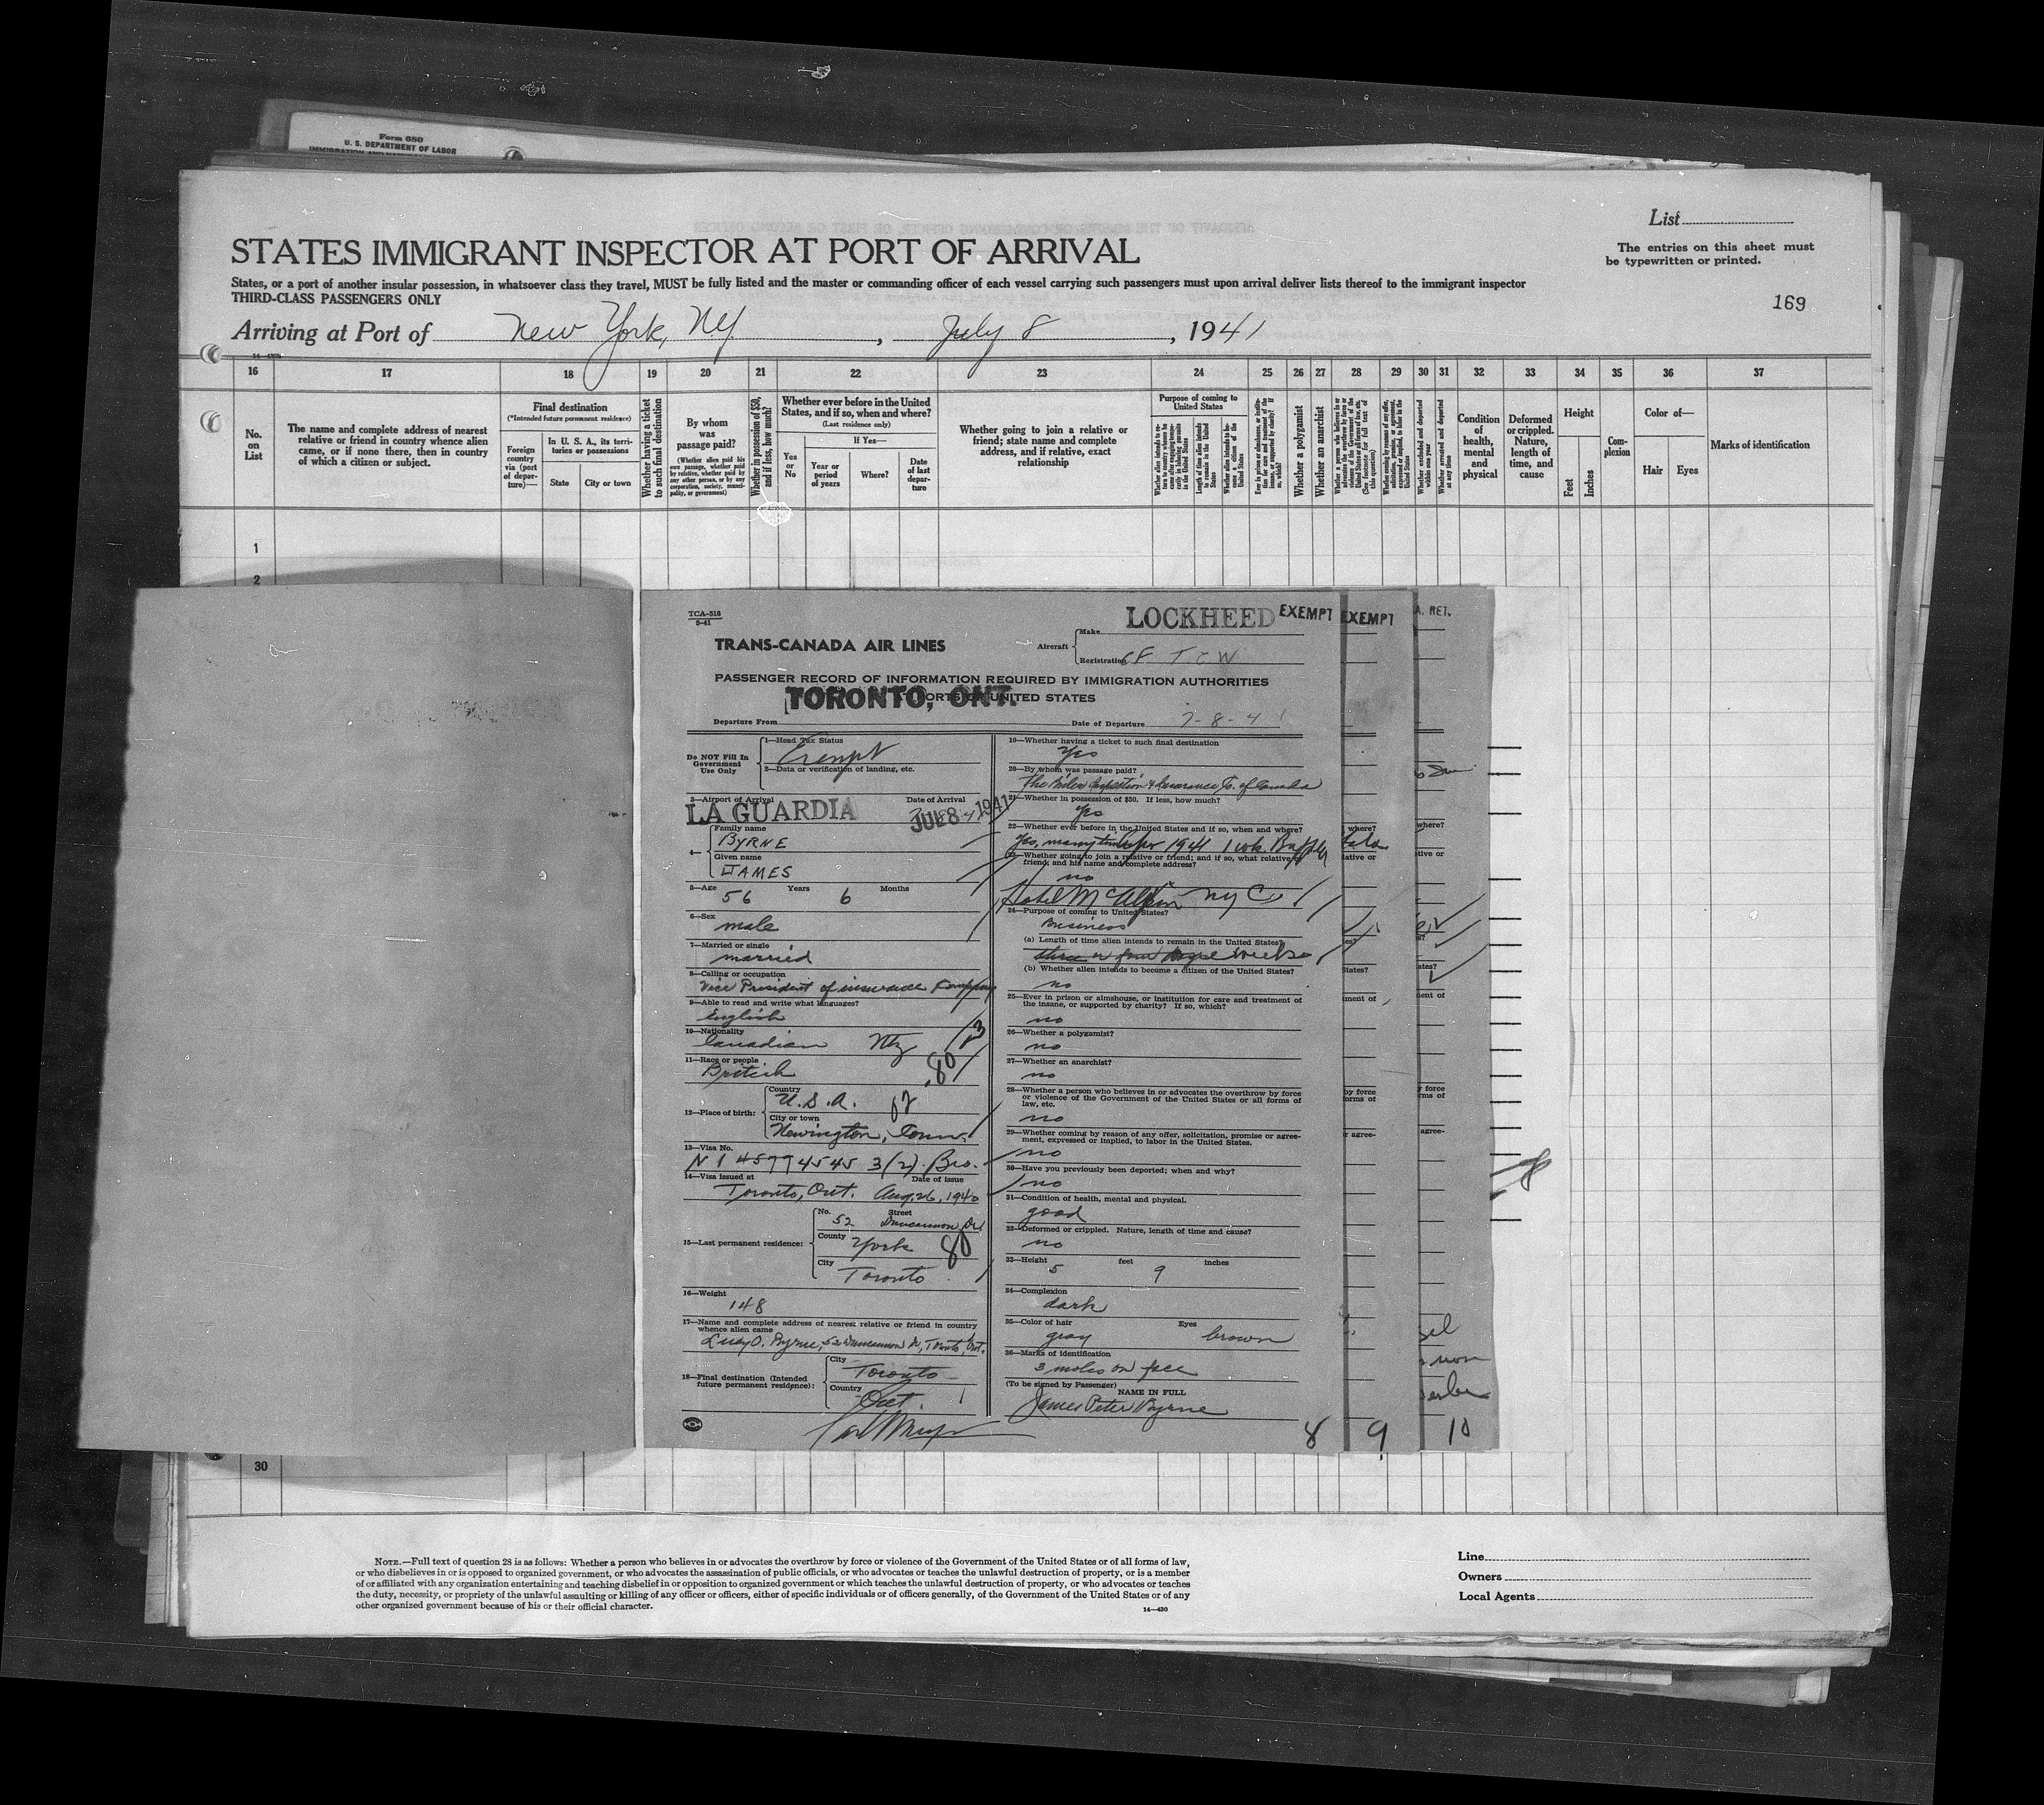 Form 680
U. S. DEPARTMENT OF LABOR
List
STATES IMMIGRANT INSPECTOR AT PORT OF ARRIVAL
The entries on this sheet must
be typewritten or printed.
States, or a port of another insular possession, in whatsoever class they travel, MUST be fully listed and the master or commanding officer of each vessel carrying such passengers must upon arrival deliver lists thereof to the immigrant inspector
THIRD-CLASS PASSENGERS ONLY
169
Arriving at Port of New York, N.Y. , July 8 , 1941
16 17 18 19 20 21 22 23 24 25 26 27 28 29 30 31 32 33 34 35 36 37
No. on List
The name and complete address of nearest relative or friend in country whence alien came, or if none there, then in country of which a citizen or subject.
Final destination
(*Intended future permanent residence)
Foreign country via (port of departure)—
In U. S. A., its territories or possessions
State
City or town
Whether having a ticket to such final destination
By whom was passage paid?
(Whether alien paid his own passage, whether paid by relative, whether paid by any other person, or by any corporation, society, municipality, or government)
Whether in possession of $50, and if less, how much?
Whether ever before in the United States, and if so, when and where?
(Last residence only)
Yes or No
If Yes—
Year or period of years
Where?
Date of last departure
Whether going to join a relative or friend; state name and complete address, and if relative, exact relationship
Purpose of coming to United States
Length of time alien intends to remain in the United States
Whether a polygamist
Whether an anarchist
Whether excluded and deported within one year
Whether arrested and deported at any time
Condition of health, mental and physical
Deformed or crippled. Nature, length of time, and cause
Height
Feet
Inches
Complexion
Color of—
Hair
Eyes
Marks of identification
1
2
TCA-518
5-41
LOCKHEED EXEMPT
EXEMPT
A. RET.
TRANS-CANADA AIR LINES
Aircraft
Make
Registration CF TCW
PASSENGER RECORD OF INFORMATION REQUIRED BY IMMIGRATION AUTHORITIES
TORONTO, ONT. UNITED STATES
Departure From
Date of Departure 7-8-41
Do NOT Fill In
Government
Use Only
1—Head Tax Status
Exempt
2—Data or verification of landing, etc.
3—Airport of Arrival Date of Arrival
LA GUARDIA JUL 8 - 1941
4—
Family name
BYRNE
Given name
JAMES
5—Age 56 Years 6 Months
6—Sex
male
7—Married or single
married
8—Calling or occupation
Vice President of insurance Company
9—Able to read and write what languages?
English
10—Nationality
Canadian
11—Race or people
British
80
12—Place of birth:
Country
U.S.A.
City or town
Newington, Conn.
13—Visa No.
14—Visa issued at Date of issue
Toronto, Ont. Aug. 26, 1940
15—Last permanent residence:
No. Street
52 Duncannon Dr
County
York 80
City
Toronto
16—Weight
148
17—Name and complete address of nearest relative or friend in country
whence alien came
Lucy O. Byrne, 52 Duncannon Dr, Toronto, Ont.
18—Final destination (Intended
future permanent residence):
City
Toronto
Country
Ont.
19—Whether having a ticket to such final destination
Yes
20—By whom was passage paid?
The Boiler Inspection & Insurance Co. of Canada
21—Whether in possession of $50. If less, how much?
Yes
22—Whether ever before in the United States and if so, when and where?
Yes, many times 1941 1 wk. Buffalo
23—Whether going to join a relative or friend; and if so, what relative or
friend; and his name and complete address?
no
Hotel McAlpin NYC
24—Purpose of coming to United States?
Business
(a) Length of time alien intends to remain in the United States?
three or four weeks
(b) Whether alien intends to become a citizen of the United States?
no
25—Ever in prison or almshouse, or institution for care and treatment of
the insane, or supported by charity? If so, which?
no
26—Whether a polygamist?
no
27—Whether an anarchist?
no
28—Whether a person who believes in or advocates the overthrow by force
or violence of the Government of the United States or all forms of
law, etc.
no
29—Whether coming by reason of any offer, solicitation, promise or agree-
ment, expressed or implied, to labor in the United States.
no
30—Have you previously been deported; when and why?
no
31—Condition of health, mental and physical.
good
32—Deformed or crippled. Nature, length of time and cause?
no
33—Height 5 feet 9 inches
34—Complexion
dark
35—Color of hair Eyes
gray brown
36—Marks of identification
3 moles on face
(To be signed by Passenger)
NAME IN FULL
James Peter Byrne
8 9 10
30
NOTE.—Full text of question 28 is as follows: Whether a person who believes in or advocates the overthrow by force or violence of the Government of the United States or of all forms of law,
or who disbelieves in or is opposed to organized government, or who advocates the assassination of public officials, or who advocates or teaches the unlawful destruction of property, or is a member
of or affiliated with any organization entertaining and teaching disbelief in or opposition to organized government or which teaches the unlawful destruction of property, or who advocates or teaches
the duty, necessity, or propriety of the unlawful assaulting or killing of any officer or officers, either of specific individuals or of officers generally, of the Government of the United States or of any
other organized government because of his or their official character.
14—430
Line
Owners
Local Agents